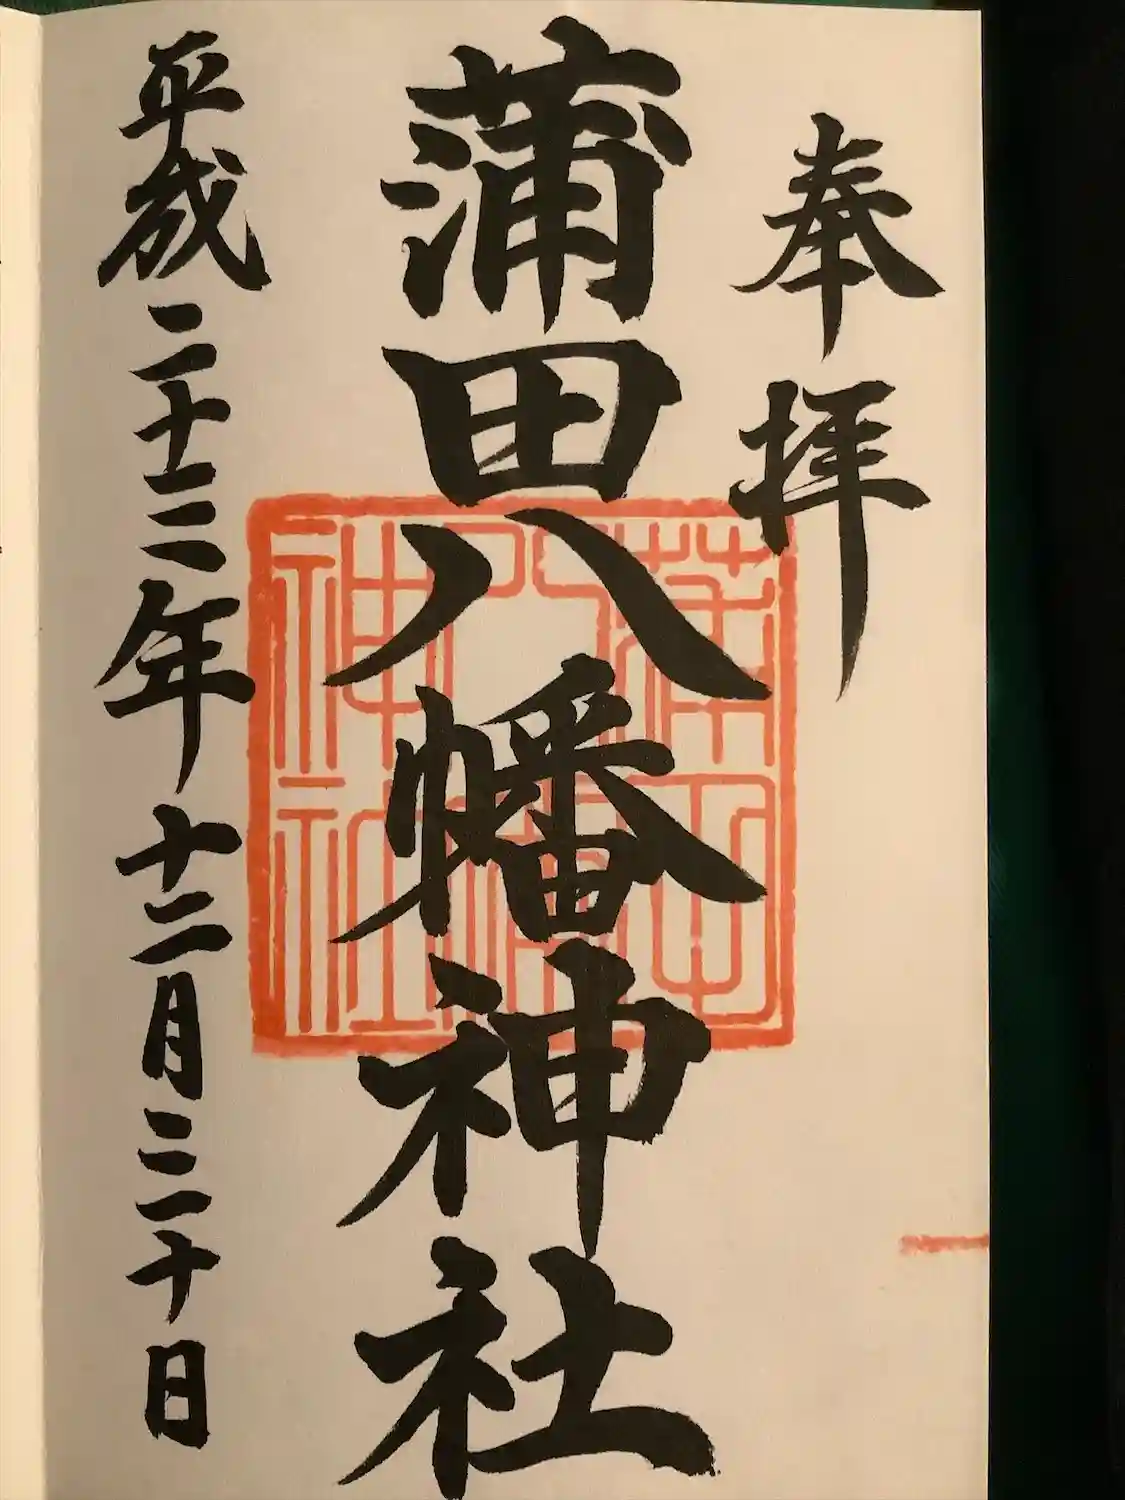 奉拝
蒲田八幡神社
平成二十三年十二月三十日
蒲田
八幡
神社